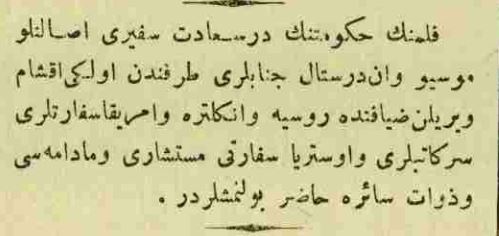 فلمنك حكومتنك درسعادت سفيرى اصالتلو
موسيو وان‌درستال جنابلرى طرفندن اولكى‌اقشام
ويريلن ضيافنده روسيه وانكلتره وامريقاسفارتلرى
سركاتبلرى واوستريا سفارتى مستشارى ومادامه‌سى
وذوات سائره حاضر بولنمشلردر .